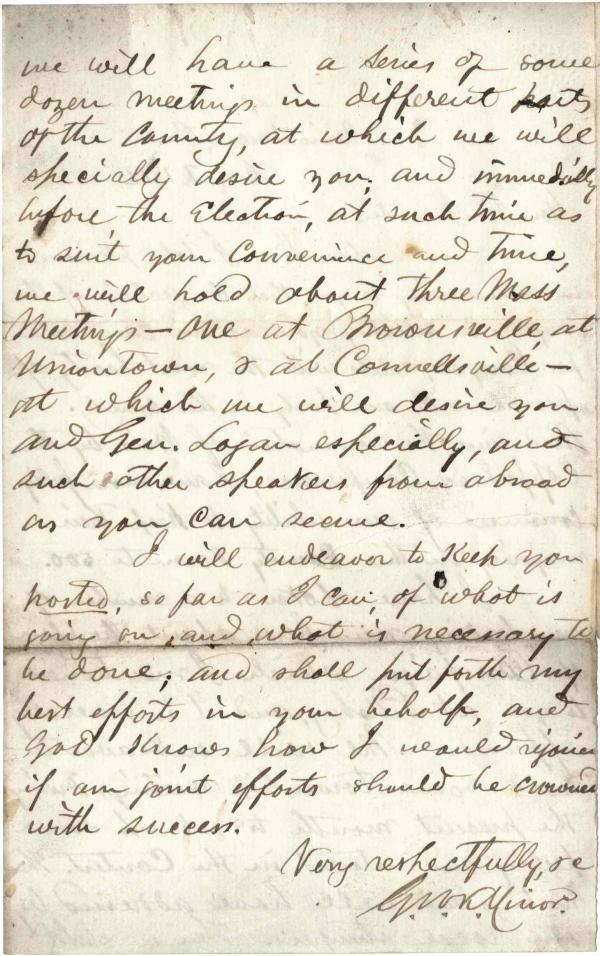 we will have a series of some
dozen meetings in different parts
of the County, at which we will
specially desire you; and immediatly
before the Election, at such time as
to suit your Convenience and time,
we will hold about three Mass
Meetings — one at Brownsville, at
Uniontown, & at Connellsville —
at which we will desire you
and Gen. Logan especially, and
such other speakers from abroad
as you can secure.
I will endeavor to Keep you
posted, so far as I can, of what is
going on, and what is necessary to
be done; and shall put forth my
best efforts in your behalf, and
God Knows how I would rejoice
if our joint efforts should be crowned
with success.
Very respectfully, &c
G.W.K. Minor.